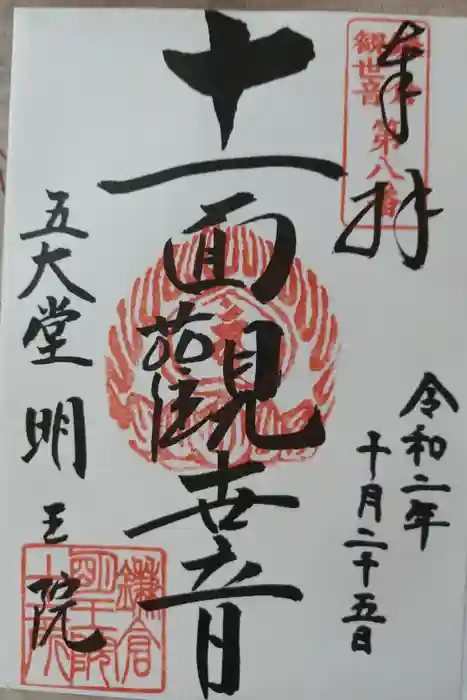 奉拝
鎌倉
観世音
第八番
令和二年
十月二十五日
十一面観世音
五大堂 明王院
鎌倉
明王院